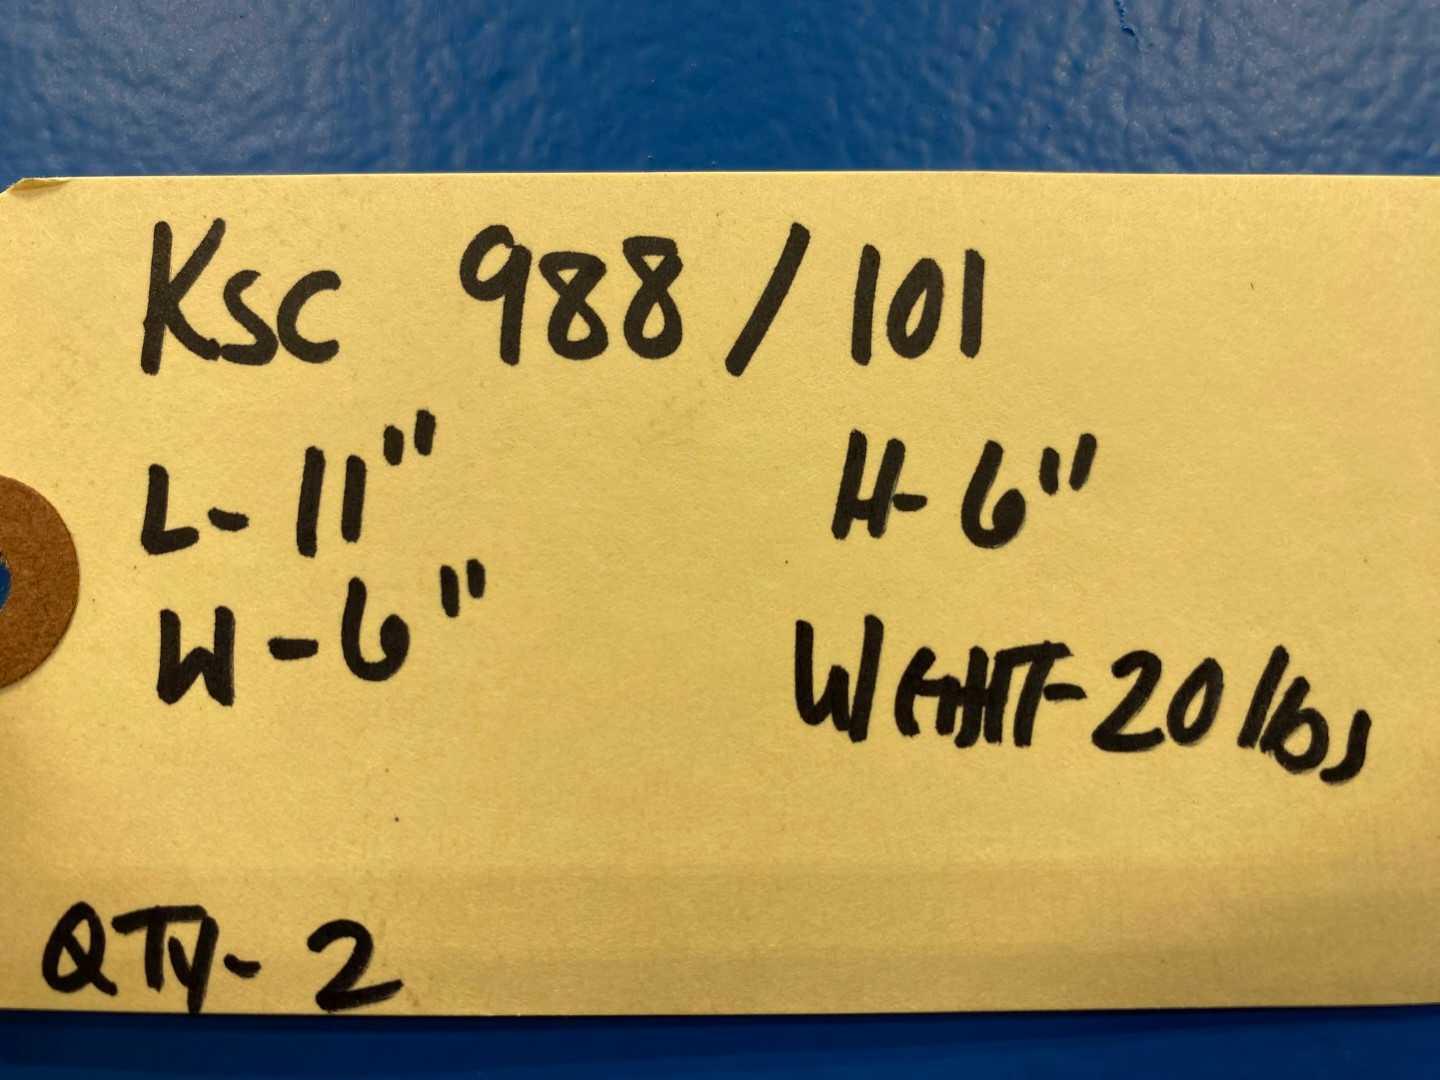 Ksc 988/101
L-11" H-6"
W-6" WEGHT-20lbs
QTy-2